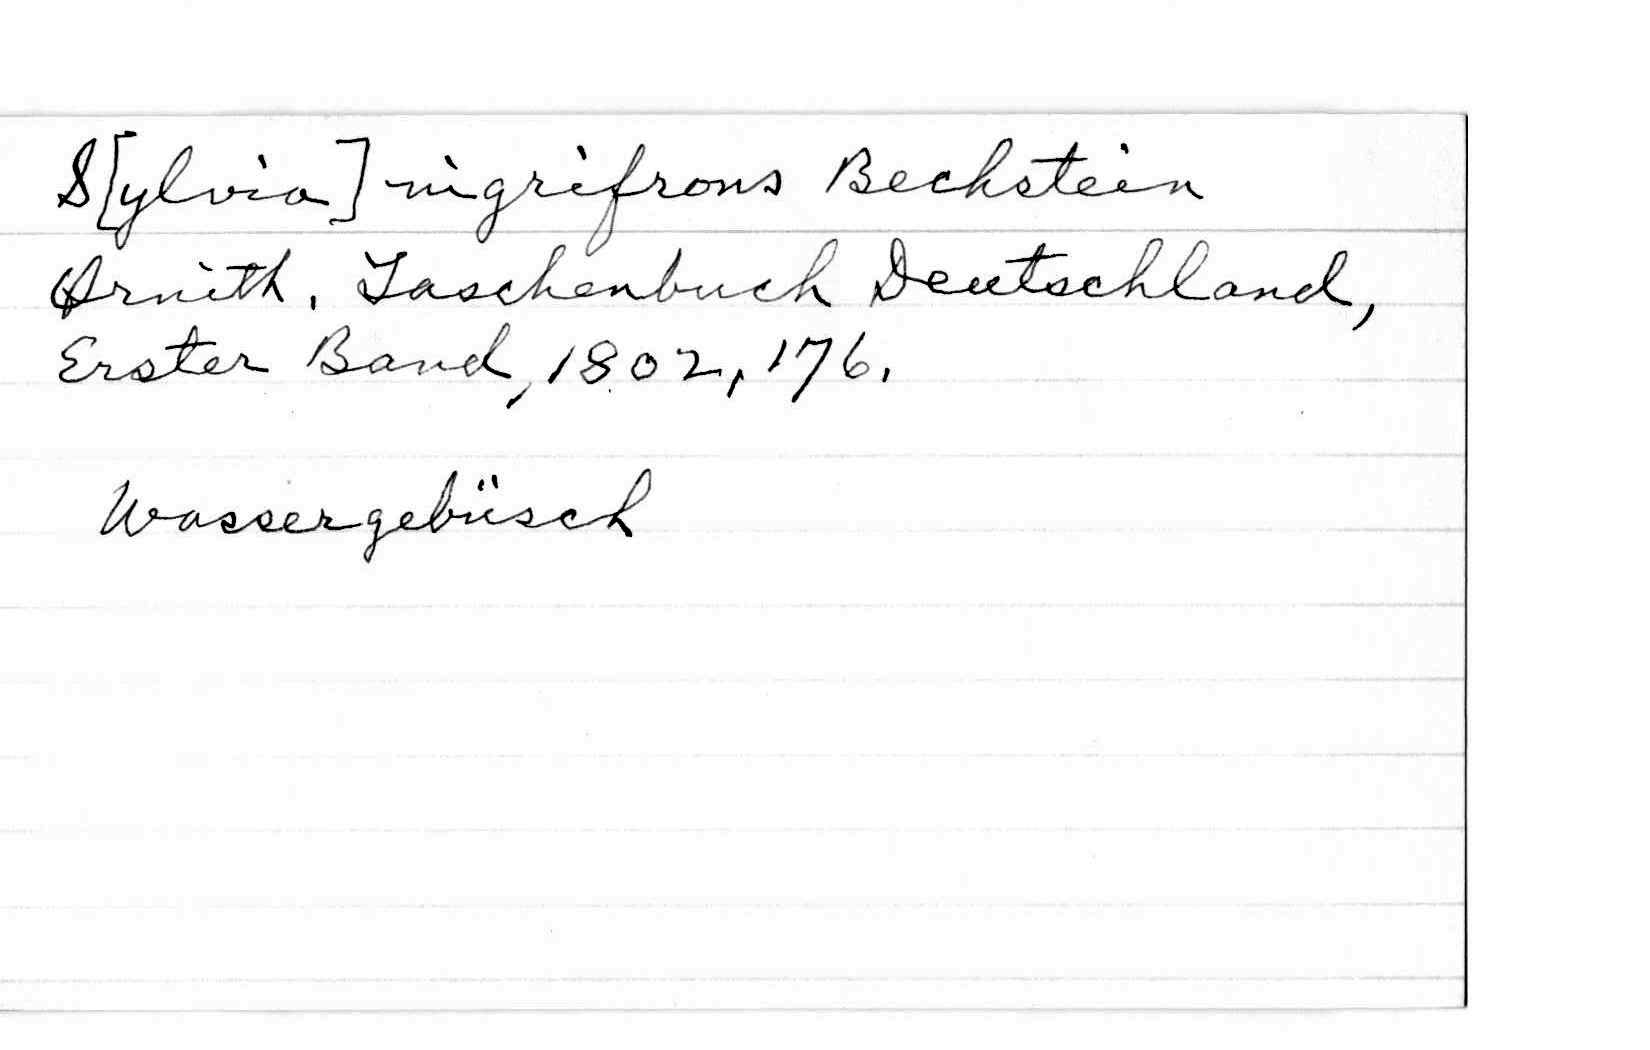 S[ylvia] nigrifrons Bechstein
Ornith. Taschenbuch Deutschland,
Erster Band, 1802, 176.
Wassergebüsch